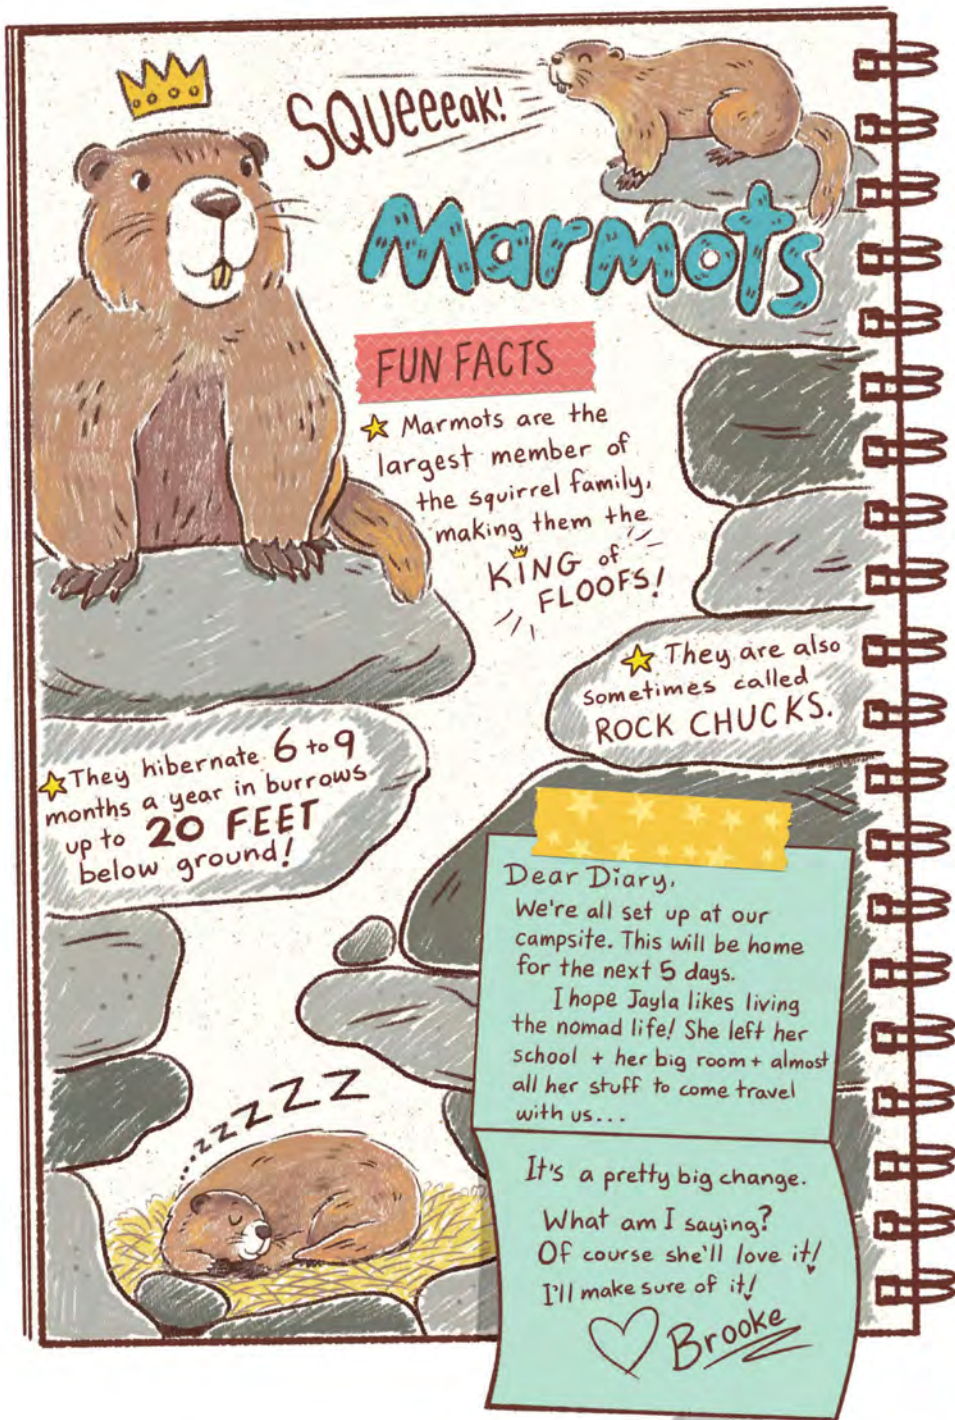 SQUEEEEAK!
Marmots
FUN FACTS
Marmots are the
largest member of
the squirrel family,
making them the
KING of
FLOOFS!
They are also
sometimes called
ROCK CHUCKS.
They hibernate 6 to 9
months a year in burrows
up to 20 FEET
below ground!
Dear Diary,
We're all set up at our
campsite. This will be home
for the next 5 days.
I hope Jayla likes living
the nomad life! She left her
school + her big room + almost
all her stuff to come travel
with us...
It's a pretty big change.
What am I saying?
Of course she'll love it!
I'll make sure of it!
Brooke
...zzzZZZ